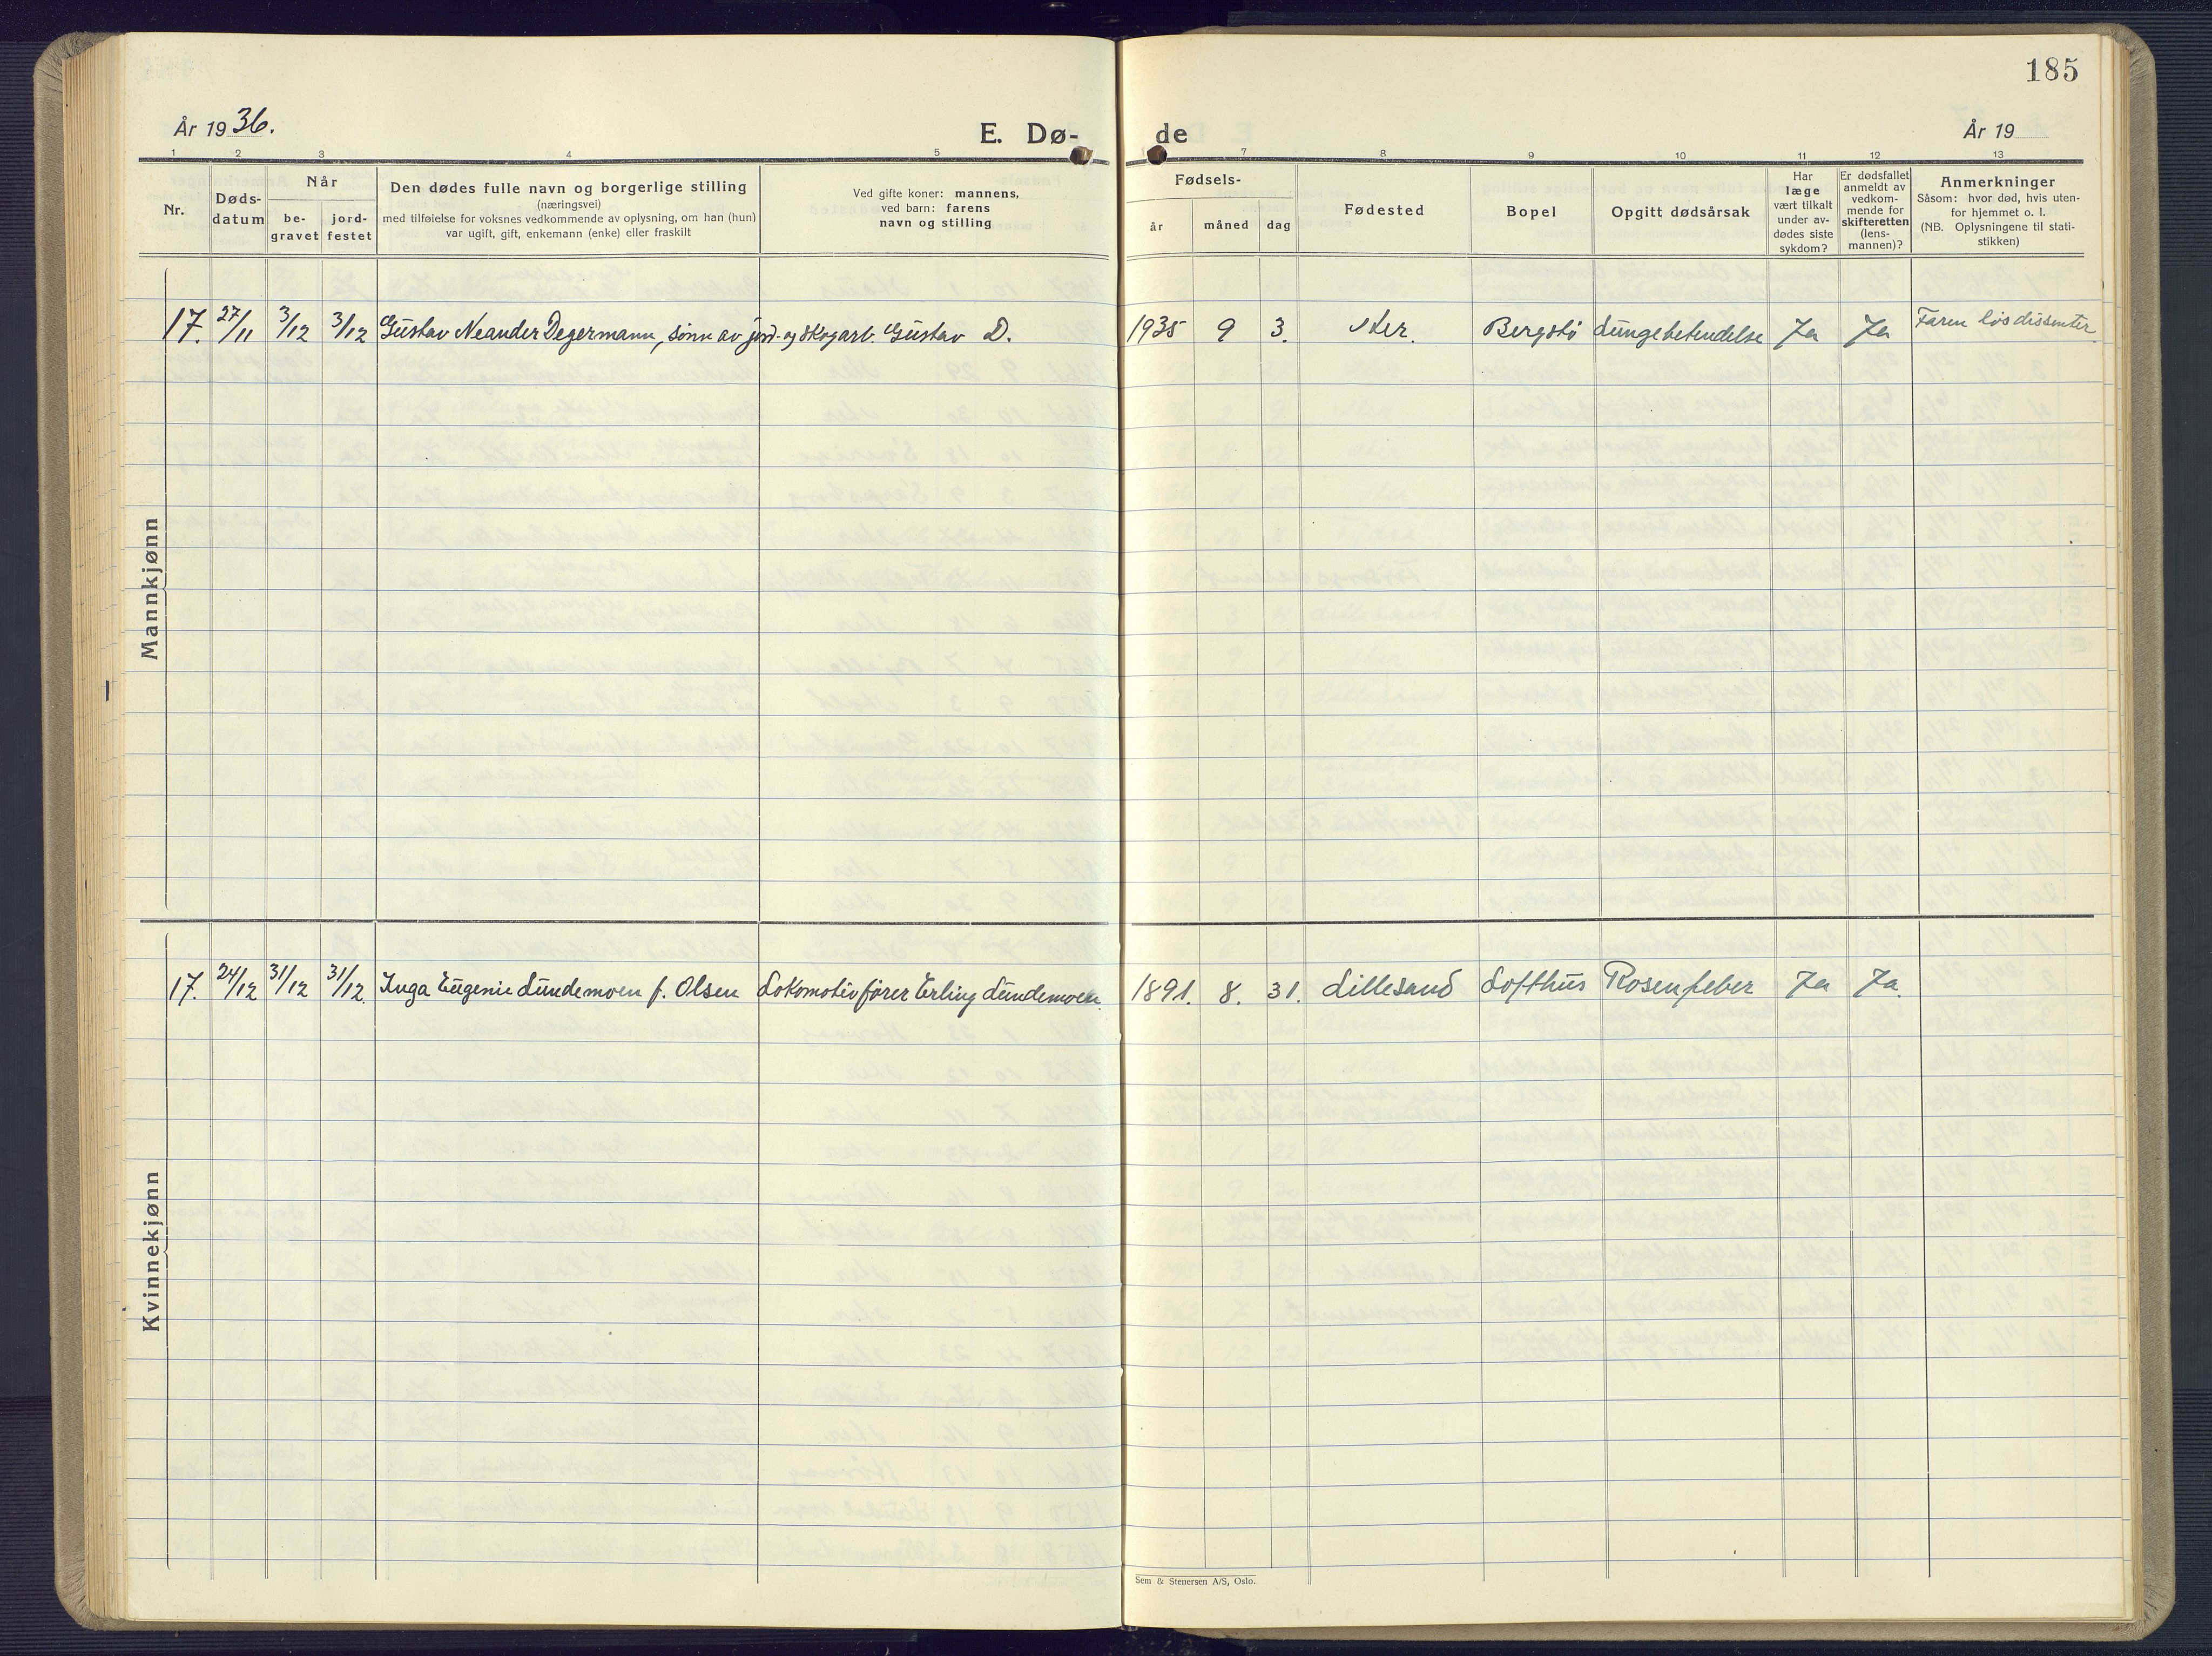 185
År 1936.
E. Dø-
de
År 19
1 2 3 4 5 7 8 9 10 11 12 13
Nr.
Døds-
datum
Når
be-
gravet
jord-
festet
Den dødes fulle navn og borgerlige stilling
(næringsvei)
med tilføielse for voksnes vedkommende av oplysning, om han (hun)
var ugift, gift, enkemann (enke) eller fraskilt
Ved gifte koner: mannens,
ved barn: farens
navn og stilling
Fødsels-
år
måned
dag
Fødested
Bopel
Opgitt dødsårsak
Har
læge
vært tilkalt
under av-
dødes siste
sykdom?
Er dødsfallet
anmeldt av
vedkom-
mende for
skifteretten
(lens-
mannen)?
Anmerkninger
Såsom: hvor død, hvis uten-
for hjemmet o. l.
(NB. Oplysningene til stati-
stikken)
Mannkjønn
17. 27/11 3/12 3/12 Gustav Neander Degermann, sønn av jord- og skogarb. Gustav D. 1935 9 3. Her. Bergstø Lungebetendelse Ja Ja Faren løs dissenter.
Kvinnekjønn
17. 24/12 31/12 31/12. Inga Eugenie Lundemoen f. Olsen Lokomotivfører Erling Lundemoen. 1891. 8. 31. Lillesand Lofthus Rosenfeber Ja Ja.
Sem & Stenersen A/S, Oslo.